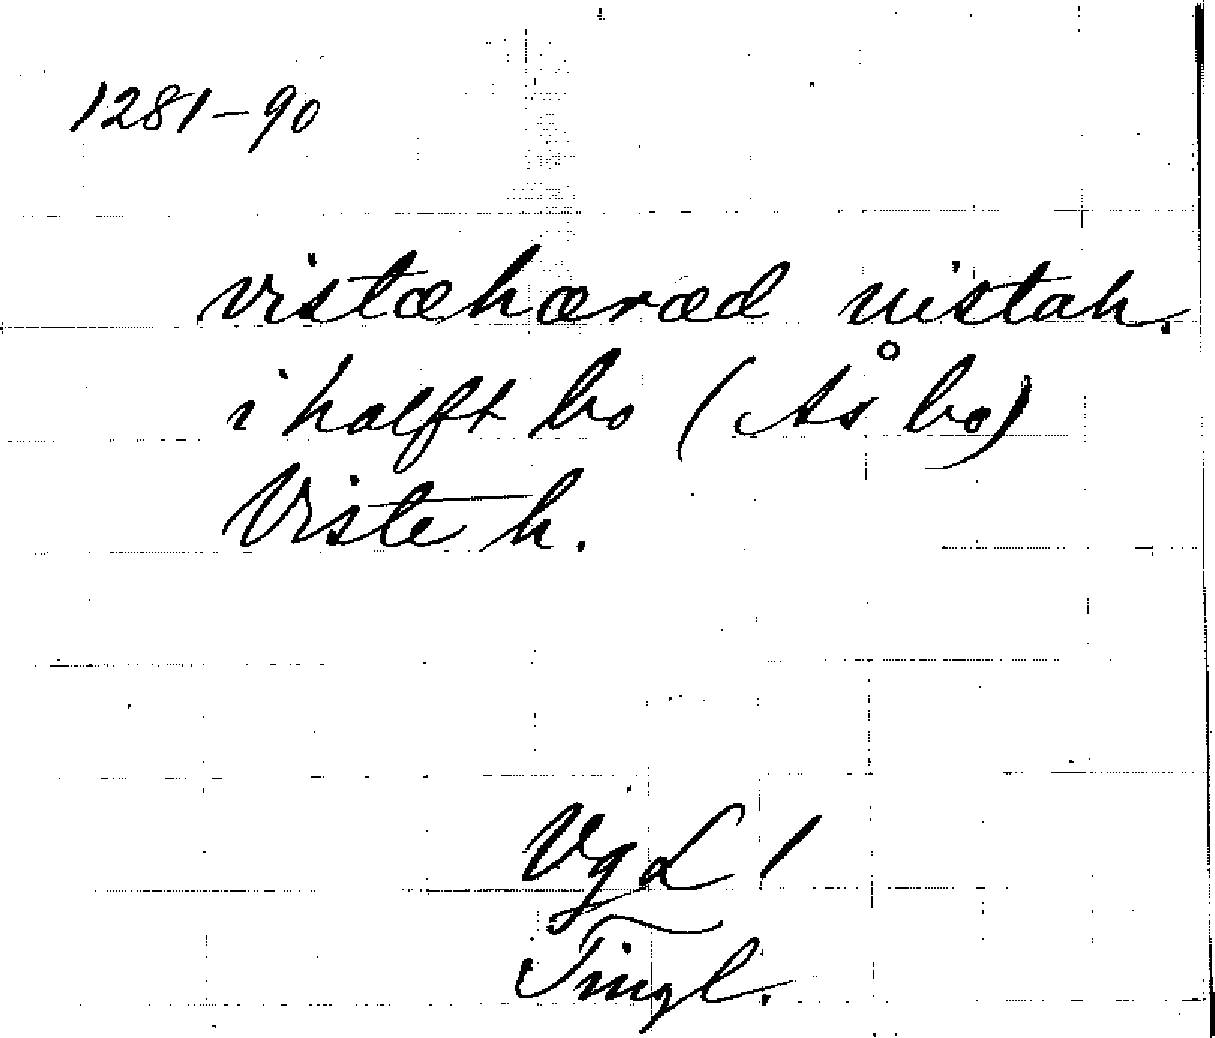 1281-90
vistæhæræd uistah.
i halft bo (Ås bo)
Viste h.
VgL 1
Tingl.